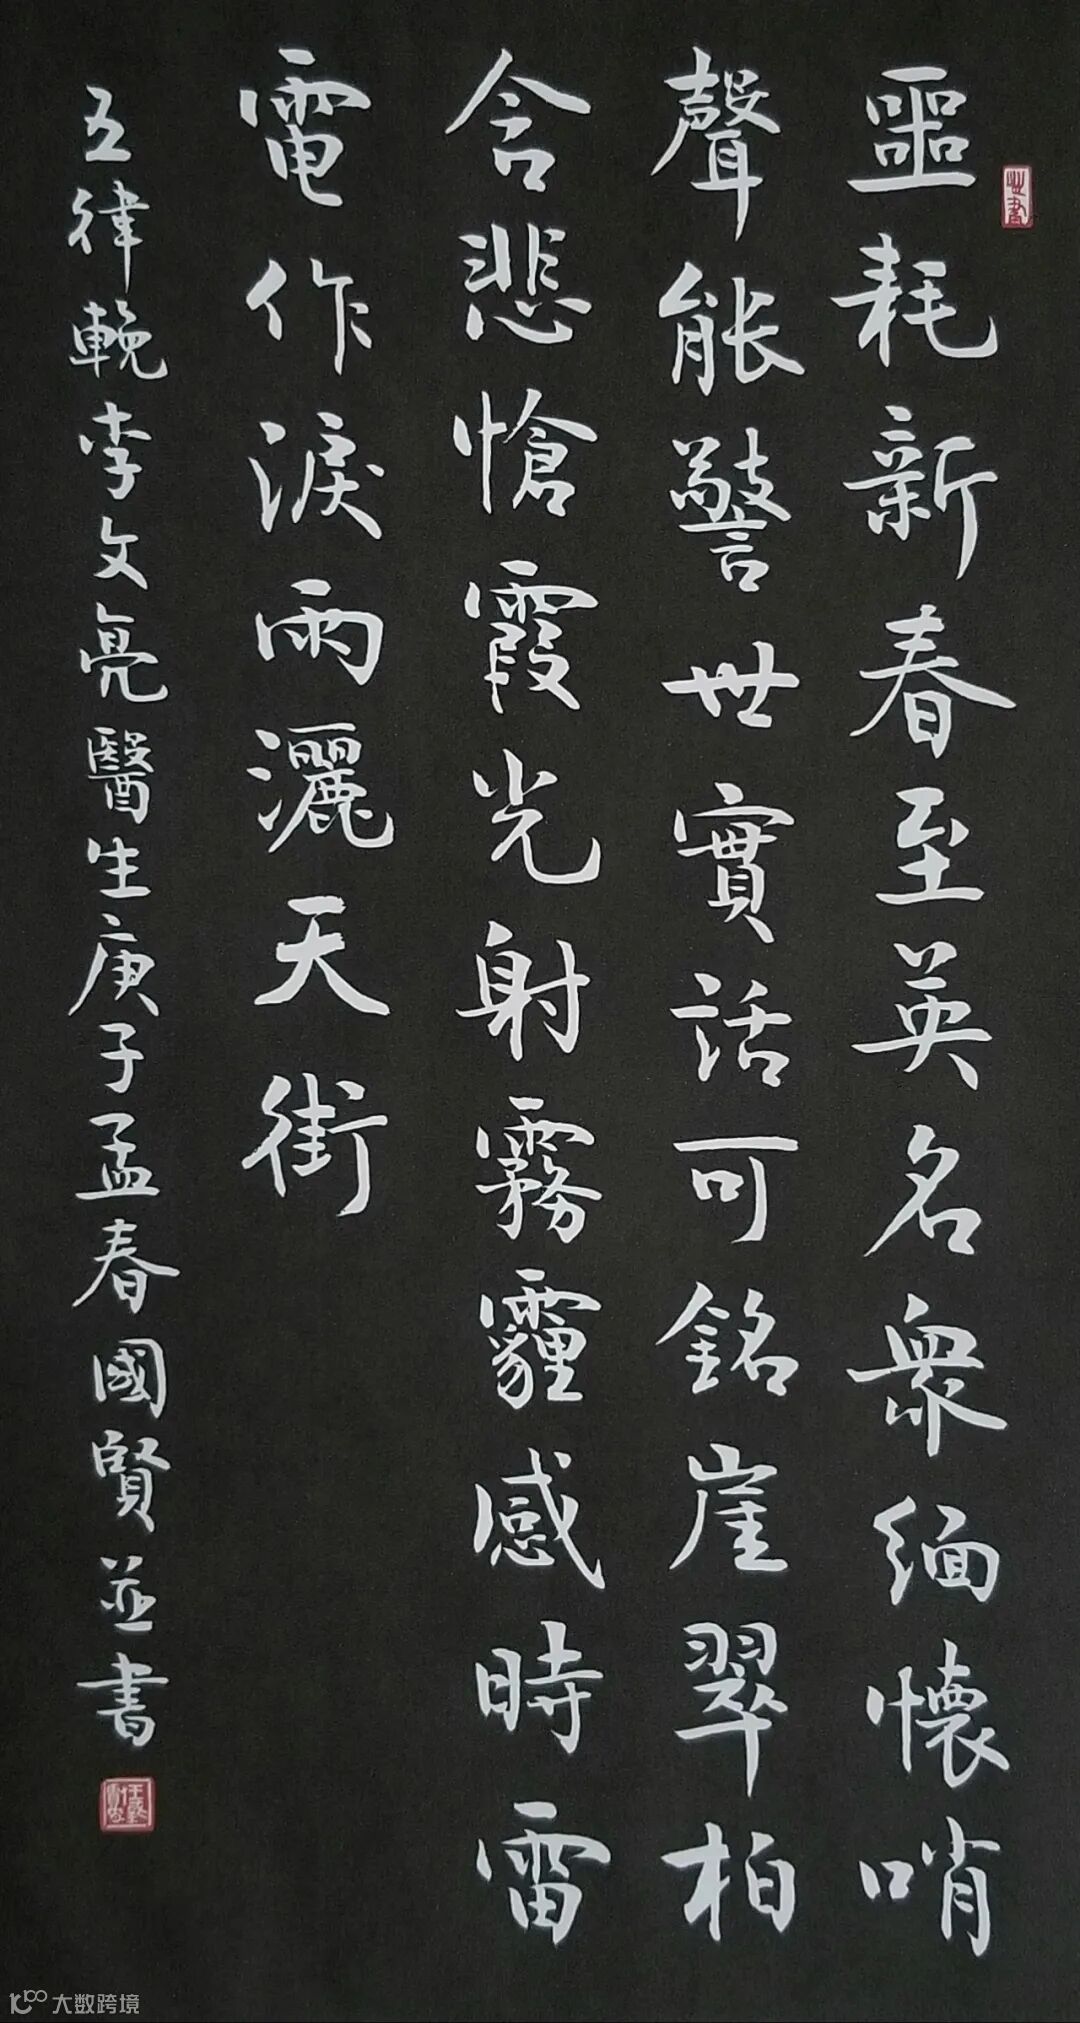 噩耗新春至英名衆緬懷哨
聲能警世實話可銘崖翠柏
含悲愴霞光射霧霾感時雷
電作淚雨灑天街
五律輓李文亮醫生庚子孟春國賢並書
大数跨境